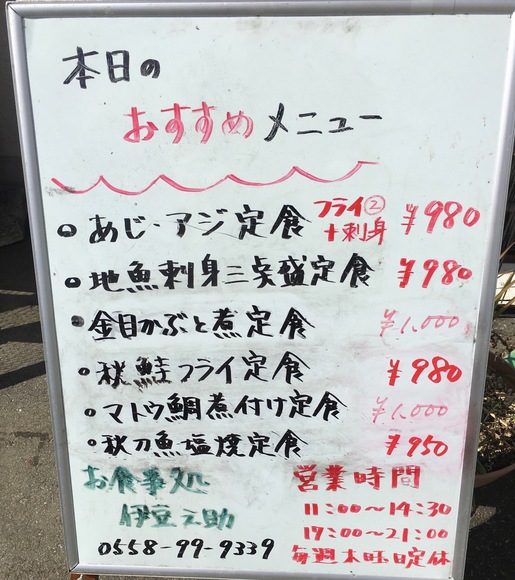 本日の
おすすめメニュー
あじ・アジ定食 フライ② +刺身 ¥980
地魚刺身三点盛定食 ¥980
金目かぶと煮定食 ¥1,000
秋鮭フライ定食 ¥980
マトウ鯛煮付け定食 ¥1,000
秋刀魚塩焼定食 ¥950
お食事処 営業時間
伊豆之助 11:00〜14:30
17:00〜21:00
0558-99-9339 毎週木曜日定休